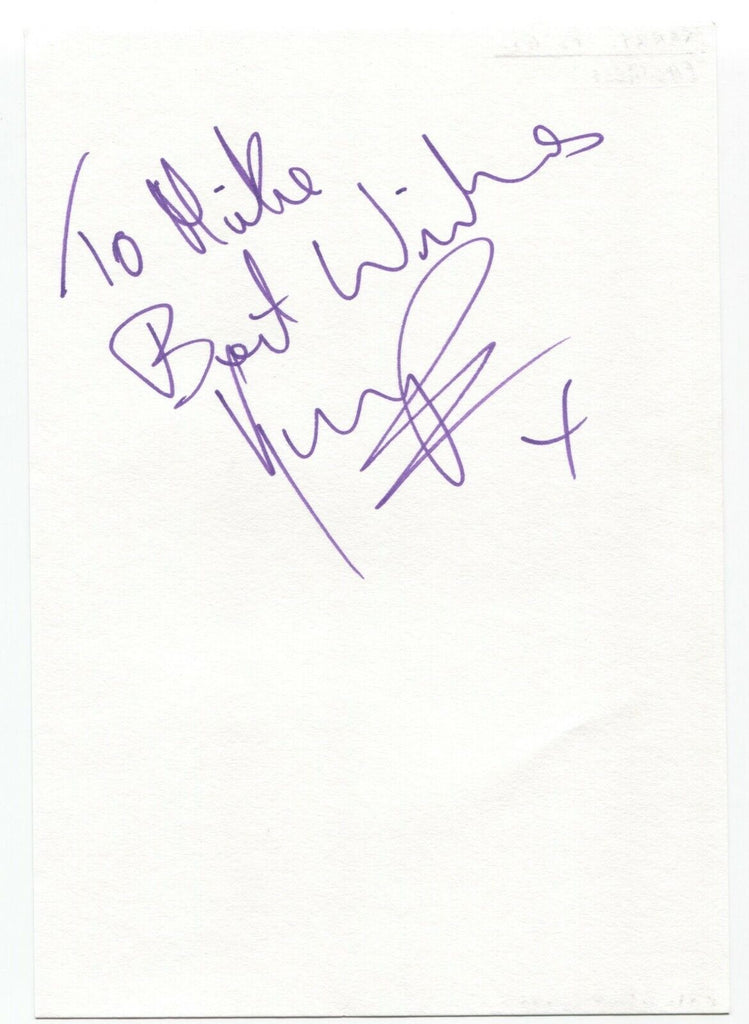 To Mike
Best Wishes
x